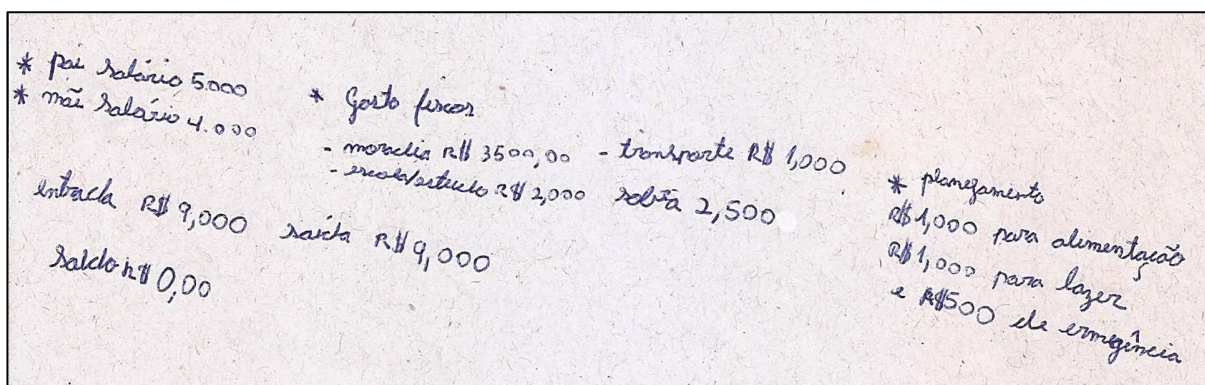 * pai salário 5.000
* mãi salário 4.000
* Gasto fiscos
- moradia R$ 3500,00 - transporte R$ 1,000
- escola/estudo R$ 2,000 sobra 2,500
entrada R$ 9,000 saida R$ 9,000
saldo R$ 0,00
* planejamento
R$ 1,000 para alimentação
R$ 1,000 para lazer
e R$500 de ermegência